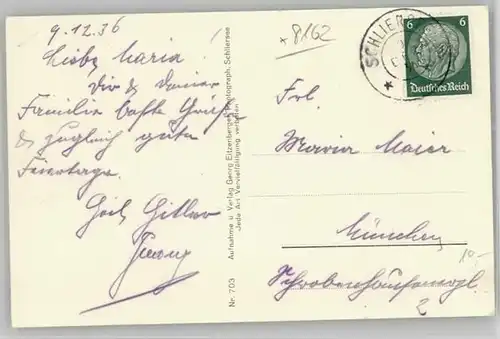 9.12.36
Liebe Maria!
Dir & Deiner
Familie beste Grüße
& zugleich gute
Feiertage.
Heil Hitler
Georg
Nr. 703
Aufnahme u. Verlag Georg Eitzenberger, Photograph, Schliersee
Jede Art Vervielfältigung verboten
* 8162
SCHLIERS
6 6
Deutsches Reich
Frl.
Maria Maier
München
10.-
2